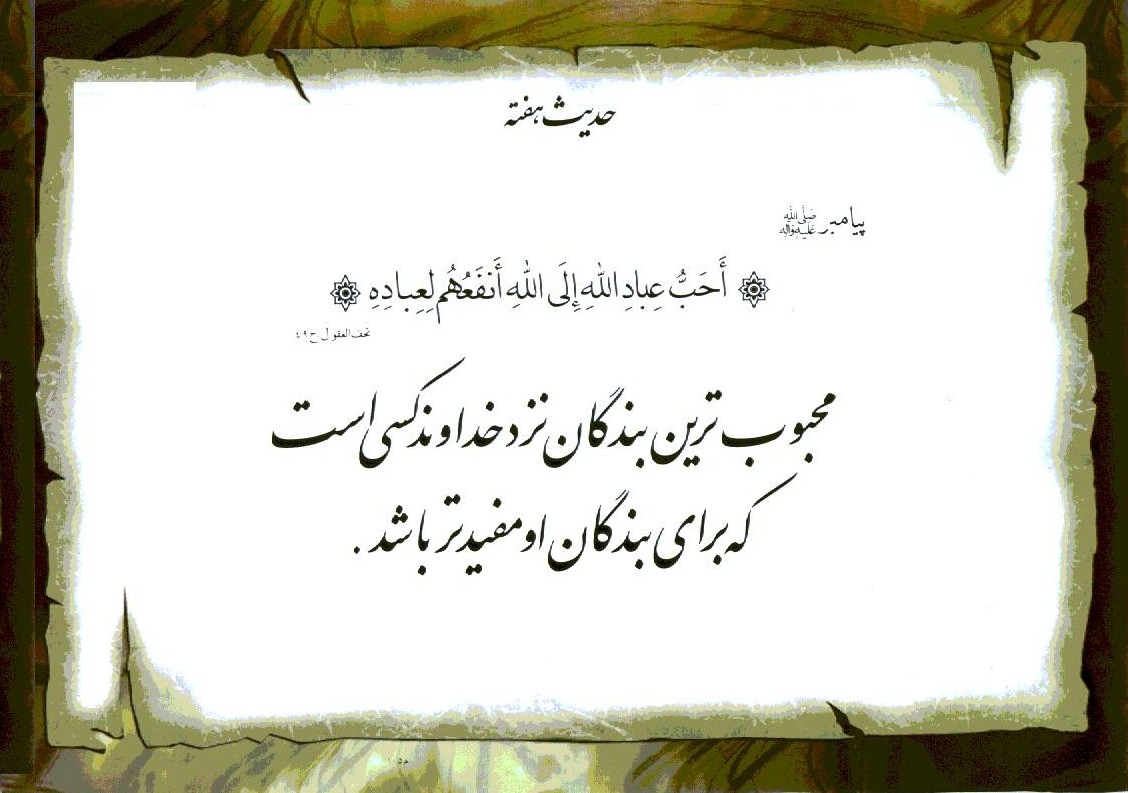 حدیث هفته
پیامبر صَلَّی اللّه عَلَیهِ وَآلِه
أَحَبُّ عِبادِ اللّٰهِ إِلَی اللّٰهِ أَنفَعُهُم لِعِبادِهِ
تحف العقول ح ٤٩
محبوب ترین بندگان نزد خداوند کسی است
که برای بندگان او مفیدتر باشد.